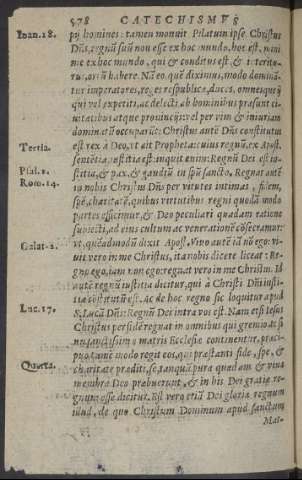 578 CATECHISMVS
Ioan. 18.
pij homines: tamen monuit Pilatum ipse Christus
Dñs, regnū suū non esse ex hoc mundo, hoc est, mini
me ex hoc mundo, qui & conditus est, & interitu-
rus, ortū habere. Nā eo, quē diximus, modo dominā-
tur imperatores, reges, respublicæ, duces, omnesque ij
qui vel expetiti, ac delecti ab hominibus præsunt ci-
uitatibus atque prouincijs: vel per vim & iniuriam
dominatū occuparūt: Christus autē Dñs constitutus
Tertia.
est rex à Deo, vt ait Propheta: cuius regnū, ex Apost.
sententia, iustitia est: inquit enim: Regnū Dei est iu-
Psal. 2.
Rom. 14.
stitia, & pax, & gaudiū in spū sancto. Regnat autē
in nobis Christus Dñs per virtutes intimas, fidem,
spē, charitatē, quibus virtutibus regni quodā modo
partes efficimur, & Deo peculiari quadam ratione
subiecti, ad eius cultum ac venerationē cōsecramur:
Galat. 2.
vt, quēadmodū dixit Apost. Viuo autē iā nō ego: vi-
uit vero in me Christus, ita nobis dicere liceat: Re-
gno ego, iam non ego: regnat vero in me Christus. Id
autē regnū iustitia dicitur, quia Christi Dñi iusti-
Luc. 17.
tia cōstitutū est. Ac de hoc regno sic loquitur apud
S. Lucā Dñs: Regnū Dei intra vos est. Nam etsi Iesus
Christus per fidē regnat in omnibus qui gremio ac si
nu sanctissimæ matris Ecclesiæ continentur, præci-
puo tamē modo regit eos, qui præstanti fide, spe, &
Quarta.
charitate præditi, se tanquā pura quædam & viua
membra Deo præbuerunt, & in his Dei gratiæ re-
gnum esse dicitur. Est vero etiā Dei gloriæ regnum
illud, de quo Christum Dominum apud sanctum
Mat-